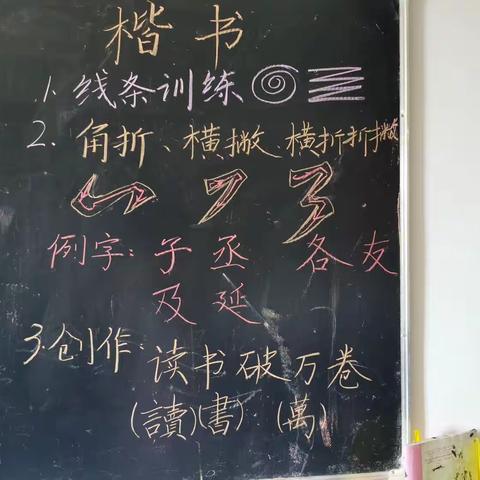 楷书
1.线条训练
2.角折、横撇、横折折撇
例字:子丞 各友
及延
3.创作:读书破万卷
(讀)(書) (萬)